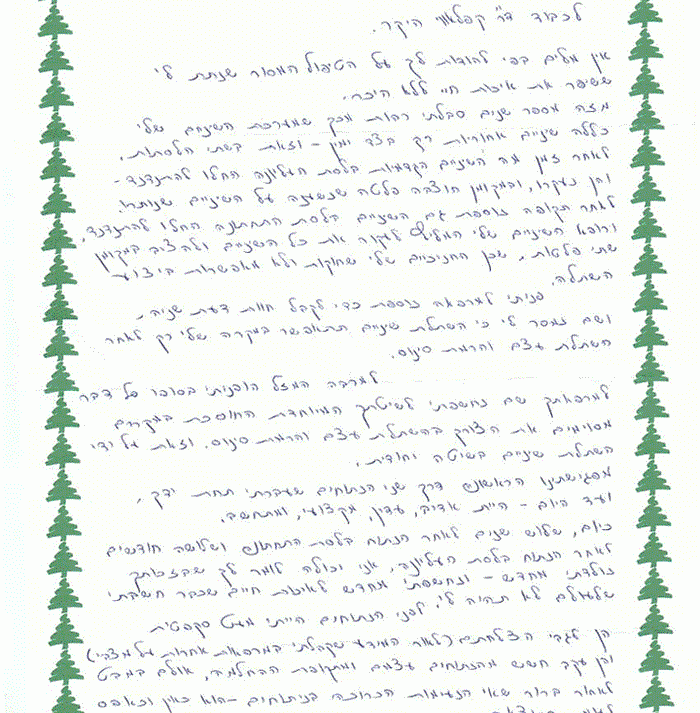 לכבוד ד"ר קפלאווי היקר.
אין מלים בפי להודות לך על הטיפול המסור שנתת לי
ששיפר את איכות חיי ללא היכר.
מזה מספר שנים סבלתי רבות מכך שמערכת השיניים שלי
כללה שיניים אחוריות רק בצד ימין - וזאת בשתי הלסתות.
לאחר זמן מה השיניים הקדמיות בלסת העליונה החלו להתנדנד -
והן נעקרו, ובמקומן הוצבה פלטה שנשענה על השיניים שנותרו.
לאחר תקופה נוספת גם השיניים בלסת התחתונה החלו להתנדנד,
ורופא השיניים שלי המליץ לעקור את כל השיניים ולהציב במקומן
שתי פלטות, שכן החניכיים שלי שחוקות ולא מאפשרות ביצוע
השתלה.
פניתי למרפאה נוספת כדי לקבל חוות דעת שניה,
ושם נמסר לי כי השתלת שיניים תתאפשר במקרה שלי רק לאחר
השתלת עצם והרמת סינוס.
למרבה המזל הופניתי בסופו של דבר
למרפאתך שם נחשפתי לשיטתך המיוחדת החוסכת במקרים
מסוימים את הצורך בהשתלת עצם והרמת סינוס. וזאת על ידי
השתלת שיניים בשיטה יחודית.
מפגישתינו הראשונה דרך שני הנתוחים שעברתי תחת ידך,
ועד היום - היית אדיב, עדין, מקצועי, ומתחשב.
כיום, שלוש שנים לאחר הנתוח בלסת התחתונה ושלושה חודשים
לאחר הנתוח בלסת העליונה, אני יכולה לומר לך שבזכותך
נולדתי מחדש - ונחשפתי מחדש לאיכות חיים שכבר חשבתי
שלעולם לא תהיה לי. לפני הנתוחים הייתי מעט סקפטית
הן לגבי הצלחתם (לאור המידע שקבלתי במרפאות אחרות על מצבי)
והן עקב חשש מהנתוחים עצמם ומתקופת ההחלמה, אולם במבט
לאחור ברור שאי הנעימות הכרוכה בניתוחים - הוא כאין וכאפס